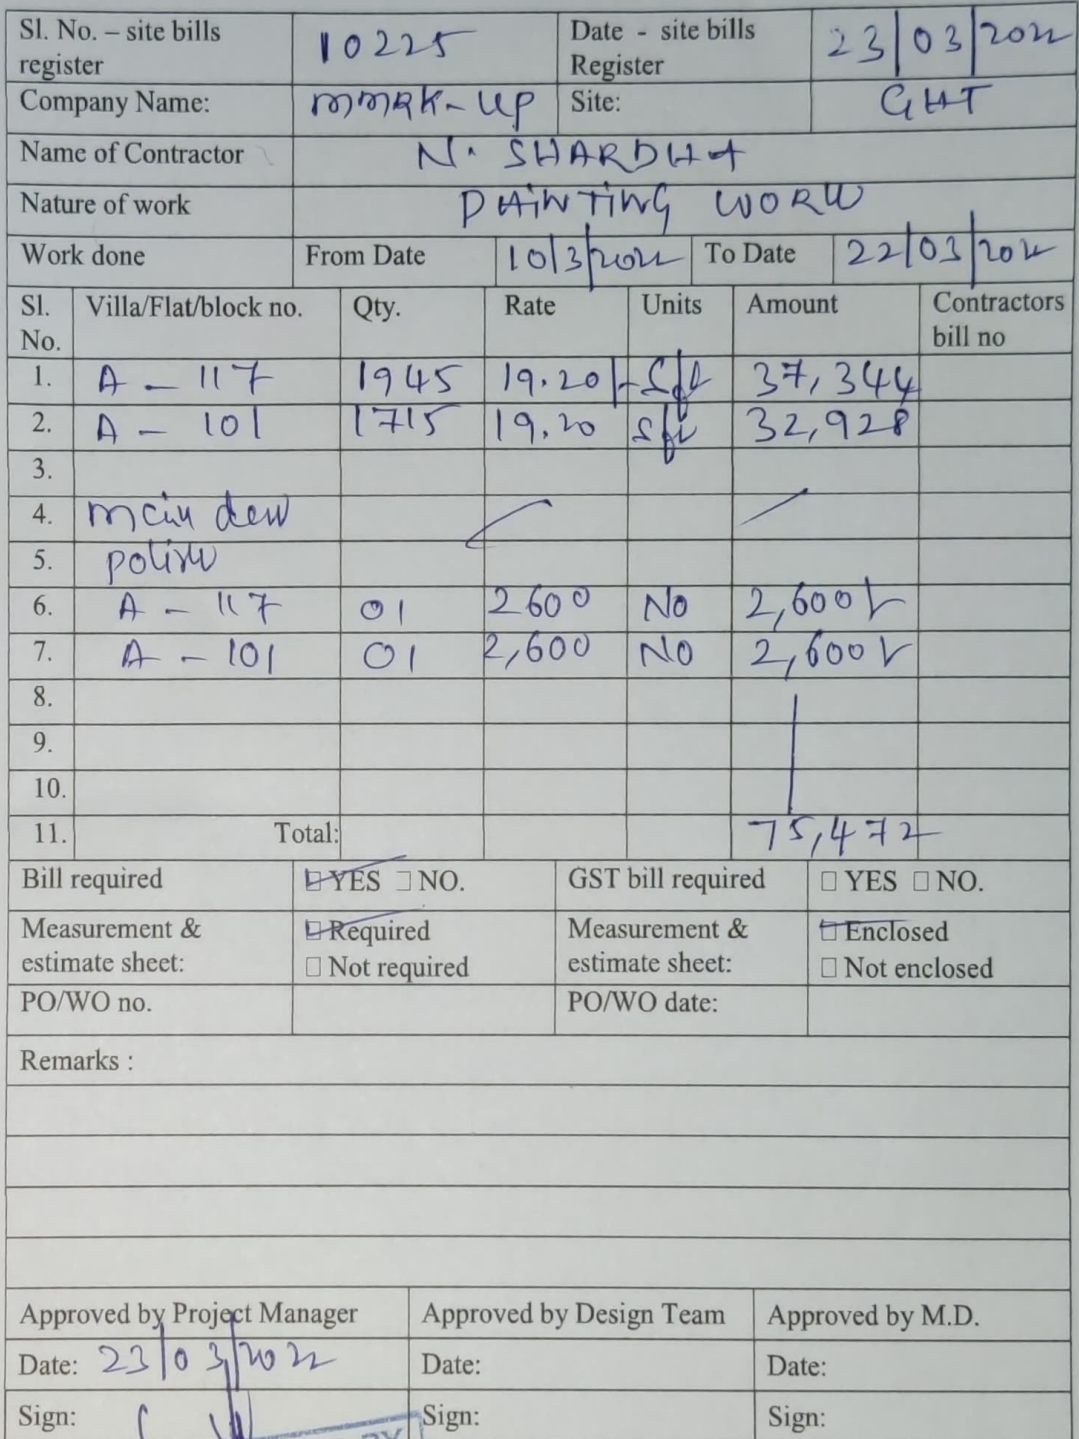 Sl. No. – site bills register 10225 Date - site bills Register 23/03/2022
Company Name: MMRK-UP Site: GHT
Name of Contractor N. SHARDHA
Nature of work PAINTING WORK
Work done From Date 10/3/2022 To Date 22/03/2022
Sl. No. Villa/Flat/block no. Qty. Rate Units Amount Contractors bill no
1. A - 117 1945 19.20/- Sft 37,344
2. A - 101 1715 19.20 Sft 32,928
3.
4. main
5. polish
6. A - 117 01 2600 No 2,600/-
7. A - 101 01 2,600 NO 2,600/-
8.
9.
10.
11. Total: 75,472
Bill required YES NO. GST bill required YES NO.
Measurement & estimate sheet: Required Not required Measurement & estimate sheet: Enclosed Not enclosed
PO/WO no. PO/WO date:
Remarks :
Approved by Project Manager Approved by Design Team Approved by M.D.
Date: 23/03/2022 Date: Date:
Sign: Sign: Sign: